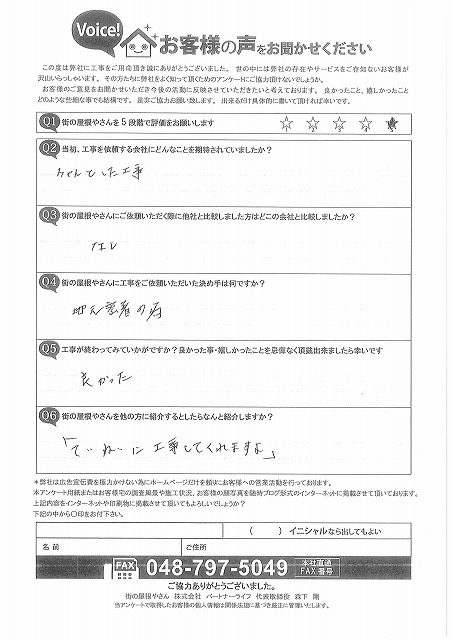 Voice!
お客様の声をお聞かせください
この度は弊社に工事をご用命頂き誠にありがとうございました。世の中には弊社の存在やサービスをご存知ないお客様が
沢山いらっしゃいます。その方たちに弊社をよく知って頂くためのアンケートにご協力頂けないでしょうか。
お客様のご意見をお聞かせいただき今後の活動に反映させていただきたいと考えております。良かったこと、嬉しかったこと
どのような些細な事でも結構です。是非ご協力お願い致します。出来るだけ具体的に書いて頂ければ幸いです。
Q1 街の屋根やさんを5段階で評価をお願いします ☆ ☆ ☆ ☆ ★
Q2 当初、工事を依頼する会社にどんなことを期待されていましたか？
ちゃんとした工事
Q3 街の屋根やさんにご依頼いただく際に他社と比較しました方はどこの会社と比較しましたか？
なし
Q4 街の屋根やさんに工事をご依頼いただいた決め手は何ですか？
地元業者の為
Q5 工事が終わってみていかがですか？良かった事・嬉しかったことを忌憚なく頂戴出来ましたら幸いです
良かった
Q6 街の屋根やさんを他の方に紹介するとしたらなんと紹介しますか？
「ていねいに工事してくれますよ」
＊弊社は広告宣伝費を極力かけない為にホームページだけを頼りにお客様への営業活動を行っております。
本アンケート用紙またはお客様宅の調査風景や施工状況、お客様の顔写真を随時ブログ形式のインターネットに掲載させて頂いております。
上記内容をインターネットや印刷物に掲載させて頂いてもよろしいでしょうか？
下記の中から〇印をお付下さい。
( ) イニシャルなら出してもよい
名前 ご住所
FAX 048-797-5049 本社直通 FAX番号
ご協力ありがとうございました。
街の屋根やさん 株式会社 パートナーライフ 代表取締役 森下 剛
当アンケートで取得したお客様の個人情報は関係法規に基づき厳正に管理いたします。